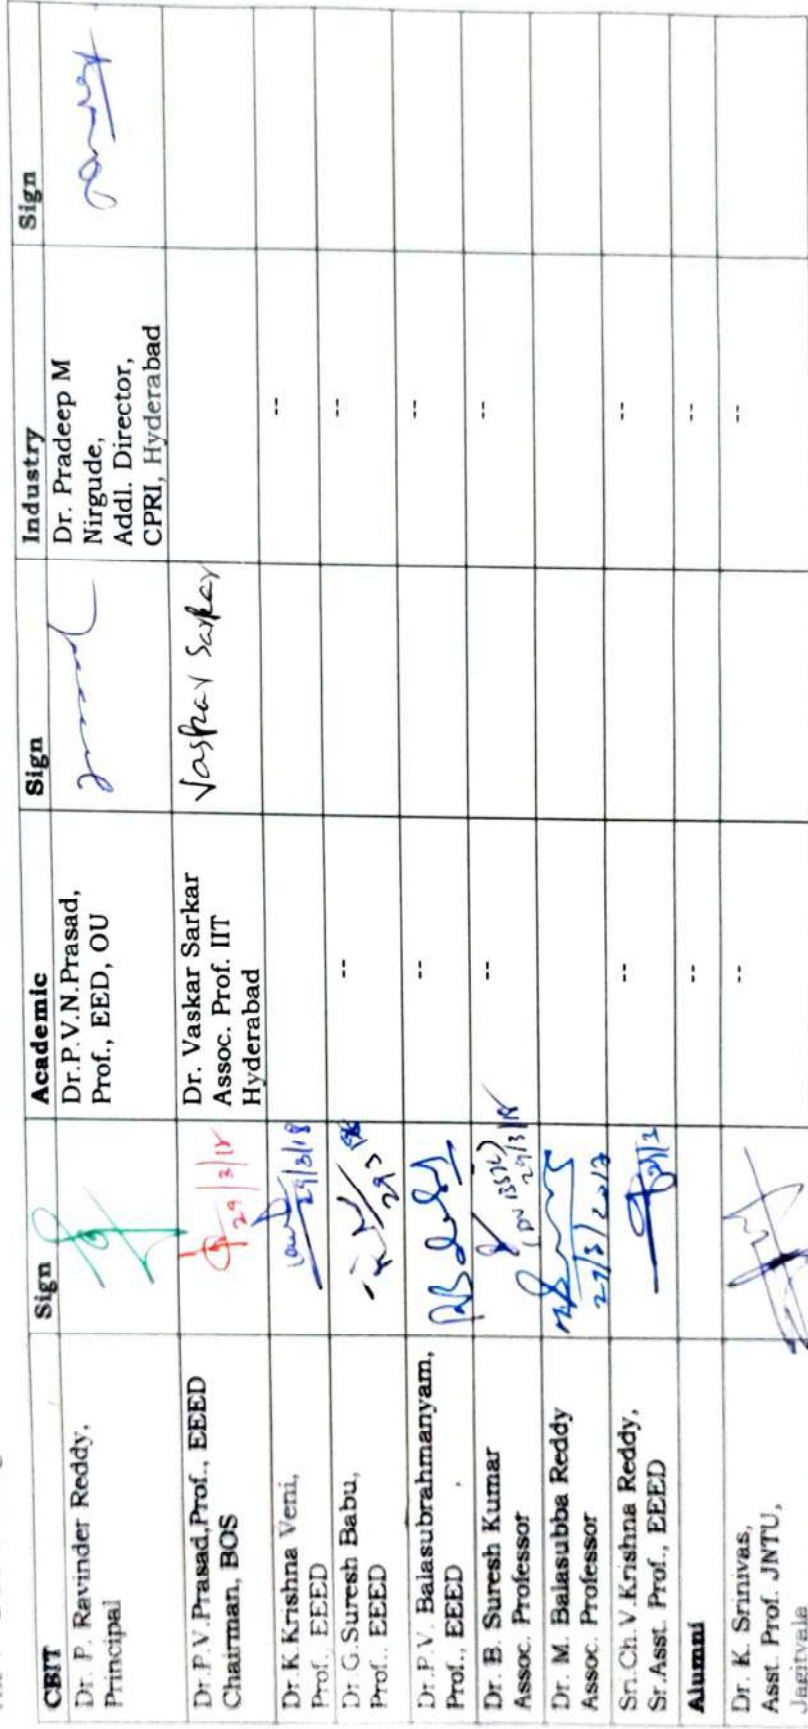 CBIT Sign Academic Sign Industry Sign
Dr. P. Ravinder Reddy,
Principal
Dr.P.V.N.Prasad,
Prof., EED, OU
Dr. Pradeep M
Nirgude,
Addl. Director,
CPRI, Hyderabad
Dr.P.V.Prasad,Prof., EEED
Chairman, BOS
29/3/18
Dr. Vaskar Sarkar
Assoc. Prof. IIT
Hyderabad
Vaskar Sarkar
Dr.K.Krishna Veni,
Prof., EEED
29/3/18
--
Dr G.Suresh Babu,
Prof., EEED
29 3
--
--
Dr.P.V. Balasubrahmanyam,
Prof., EEED
--
--
Dr. B. Suresh Kumar
Assoc. Professor
29/3/18
--
--
Dr. M. Balasubba Reddy
Assoc. Professor
Sri.Ch.V.Krishna Reddy,
Sr.Asst. Prof., EEED
--
--
Alumni
--
--
Dr. K. Srinivas,
Asst. Prof. JNTU,
Jagityala
--
--